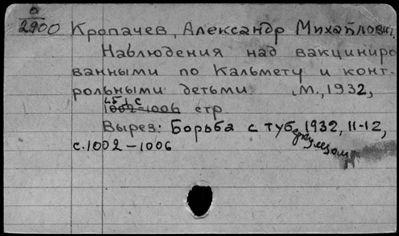 а
2900
Кропачев, Александр Михайлович.
Наблюдения над вакциниро-
ванными по Кальмету и конт-
рольными детьми. М., 1932,
1002-1006 стр
Вырез: Борьба с туберкулезом, 1932, 11-12,
с. 1002-1006